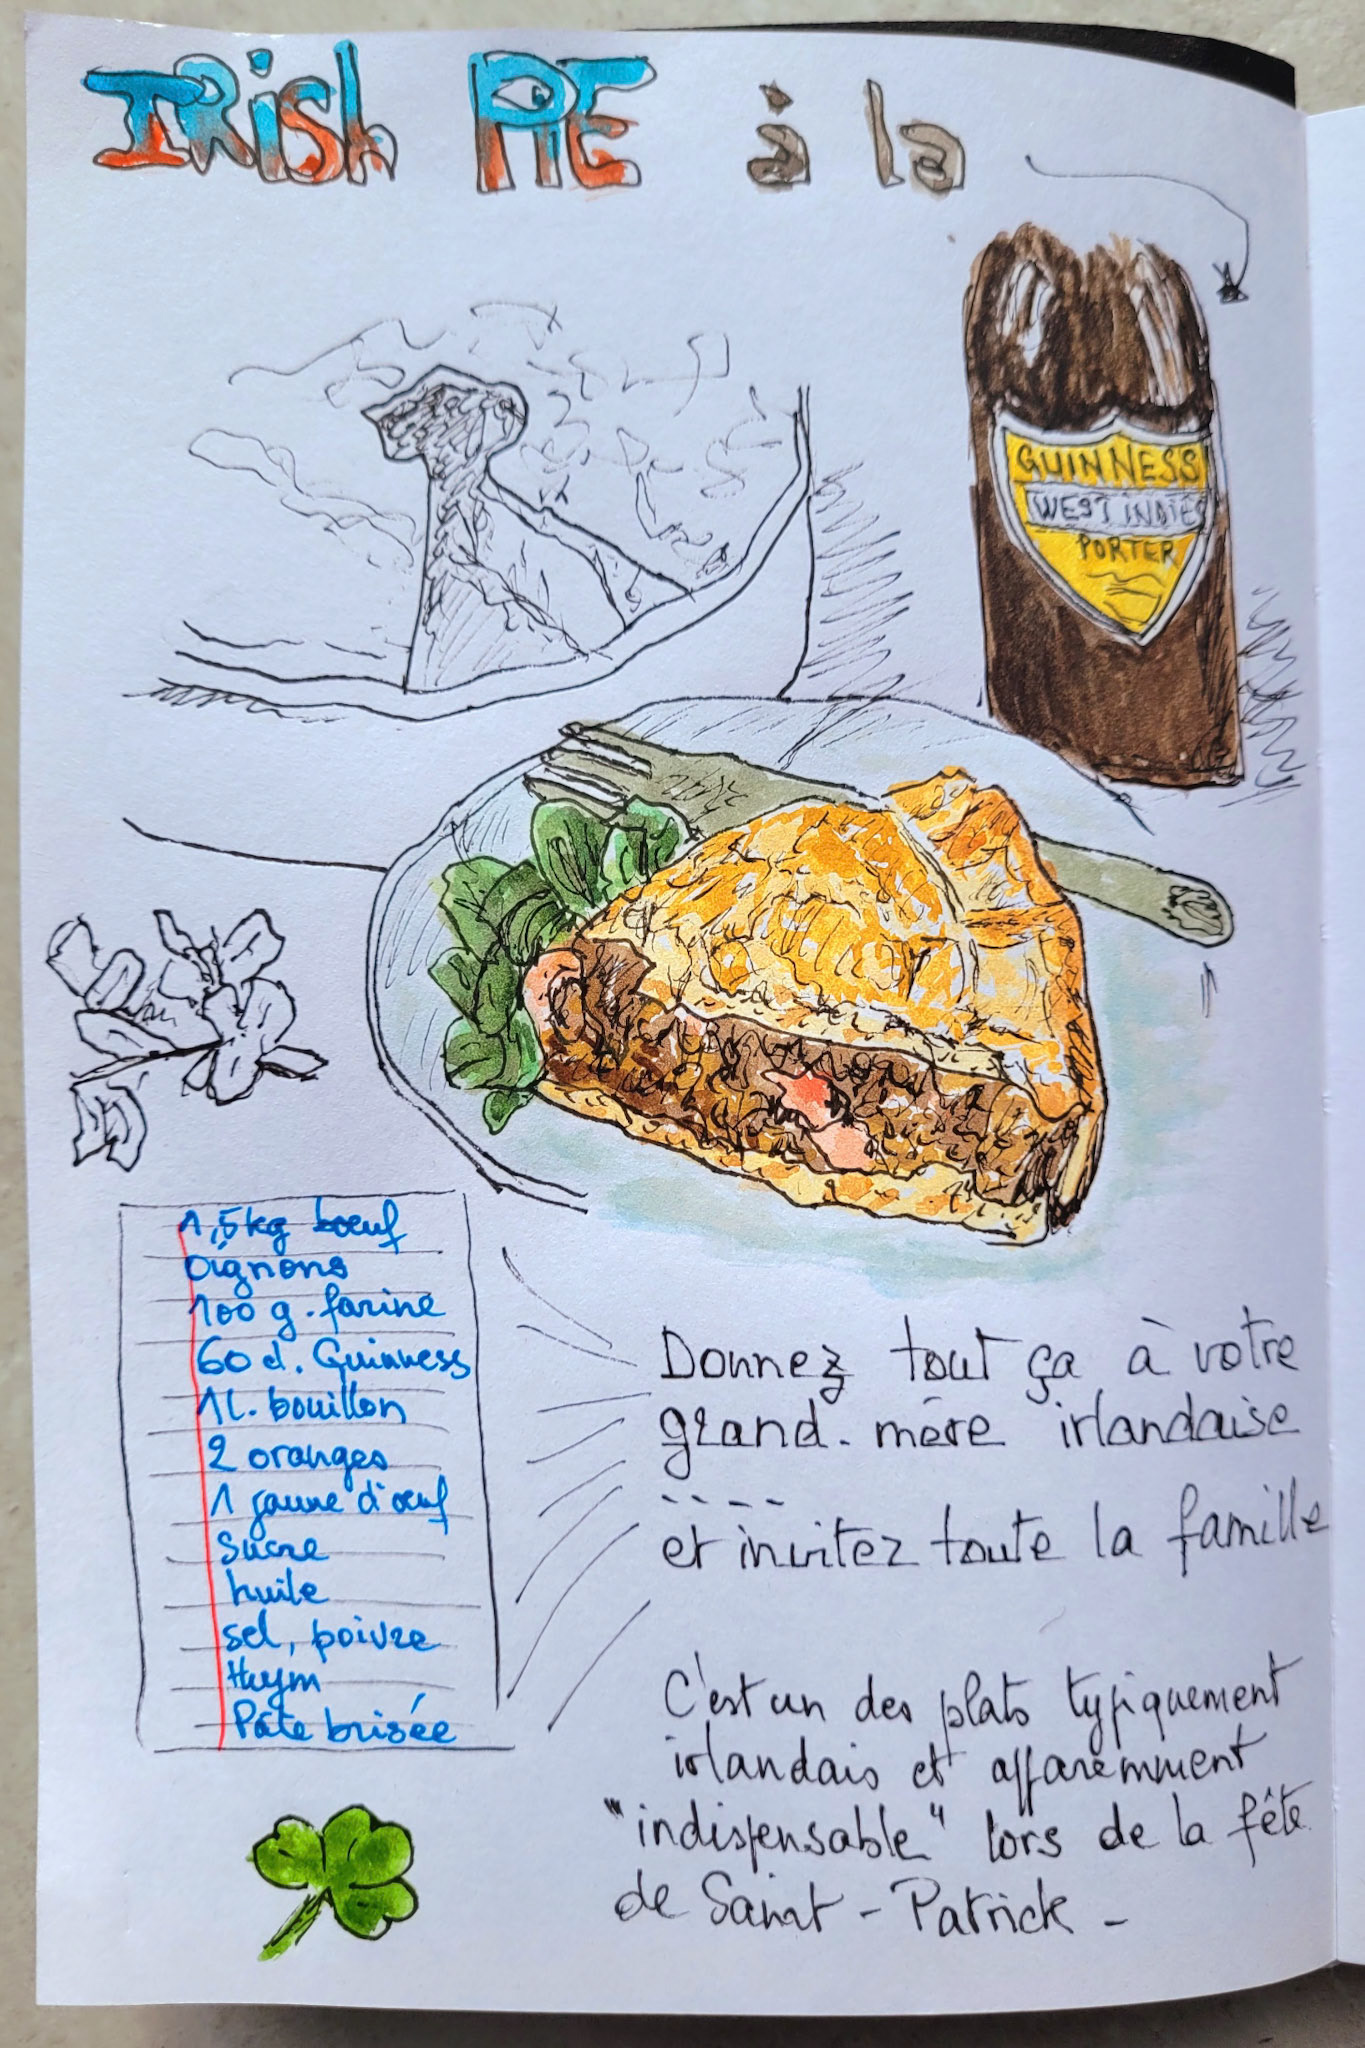 IRish PIE à la
GUINNESS
WEST INDIES
PORTER
1,5kg boeuf
Oignons
100 g. farine
60 cl. Guinness
1 L. bouillon
2 oranges
1 jaune d'oeuf
Sucre
huile
sel, poivre
thym
Pâte brisée
Donnez tout ça à votre
grand-mère irlandaise
----
et invitez toute la famille
C'est un des plats typiquement
irlandais et apparemment
"indispensable" lors de la fête
de Saint-Patrick -